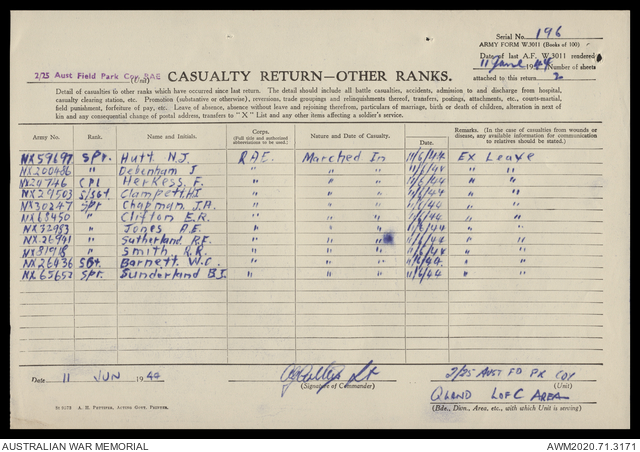 Serial No. 196
ARMY FORM W.3011 (Books of 100)
Date of last A.F. W.3011 rendered
11 June 1944 Number of sheets
attached to this return 2
2/25 Aust Field Park Coy RAE
(Unit)
CASUALTY RETURN—OTHER RANKS.
Detail of casualties to other ranks which have occurred since last return. The detail should include all battle casualties, accidents, admission to and discharge from hospital,
casualty clearing station, etc. Promotion (substantive or otherwise), reversions, trade groupings and relinquishments thereof, transfers, postings, attachments, etc., courts-martial,
field punishment, forfeiture of pay, etc. Leave of absence, absence without leave and rejoining therefrom, particulars of marriage, birth or death of children, alteration in next of
kin and any consequential change of postal address, transfers to "X" List and any other items affecting a soldier's service.
Army No. Rank. Name and Initials. Corps. (Full title and authorized abbreviation to be used.) Nature and Date of Casualty. Date. Remarks. (In the case of casualties from wounds or disease, any available information for communication to relatives should be stated.)
NX59697 Spr. Hutt N.J. RAE. Marched In 11/6/44 Ex Leave
NX200486 " Debenham J. " " 11/6/44 " "
NX20746 Cpl Herkess F. " " 11/6/44 " "
NX29503 S/Sgt Clampett H.I " " 11/6/44 " "
NX30247 Spr Chapman J.A. " " 11/6/44 " "
NX68450 " Clifton E.R. " " 11/6/44 " "
NX32953 " Jones A.E. " " 11/6/44 " "
NX26991 " Sutherland R.F. " " 11/6/44 " "
NX81918 " Smith R.R. " " 11/6/44 " "
NX26436 Sgt. Barnett W.C. " " 11/6/44 " "
NX65652 Spr. Sunderland B.J. " " " 11/6/44 " "
Date 11 JUN 1944
(Signature of Commander)
2/25 AUST FD PK COY
(Unit)
QLAND L of C AREA
(Bde., Divn., Area, etc., with which Unit is serving)
A. H. Pettifer, Acting Govt. Printer.
AUSTRALIAN WAR MEMORIAL
AWM2020.71.3171